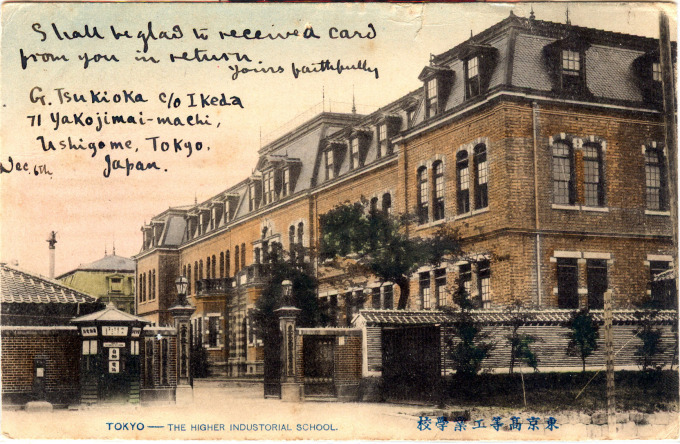 Shall be glad to received a card
from you in return.
Yours faithfully
G. Tsukioka c/o Ikeda
71 Yakojimai-machi,
Ushigome, Tokyo.
Japan.
Dec. 6th.
TOKYO — THE HIGHER INDUSTORIAL SCHOOL.
校學業工等高京東